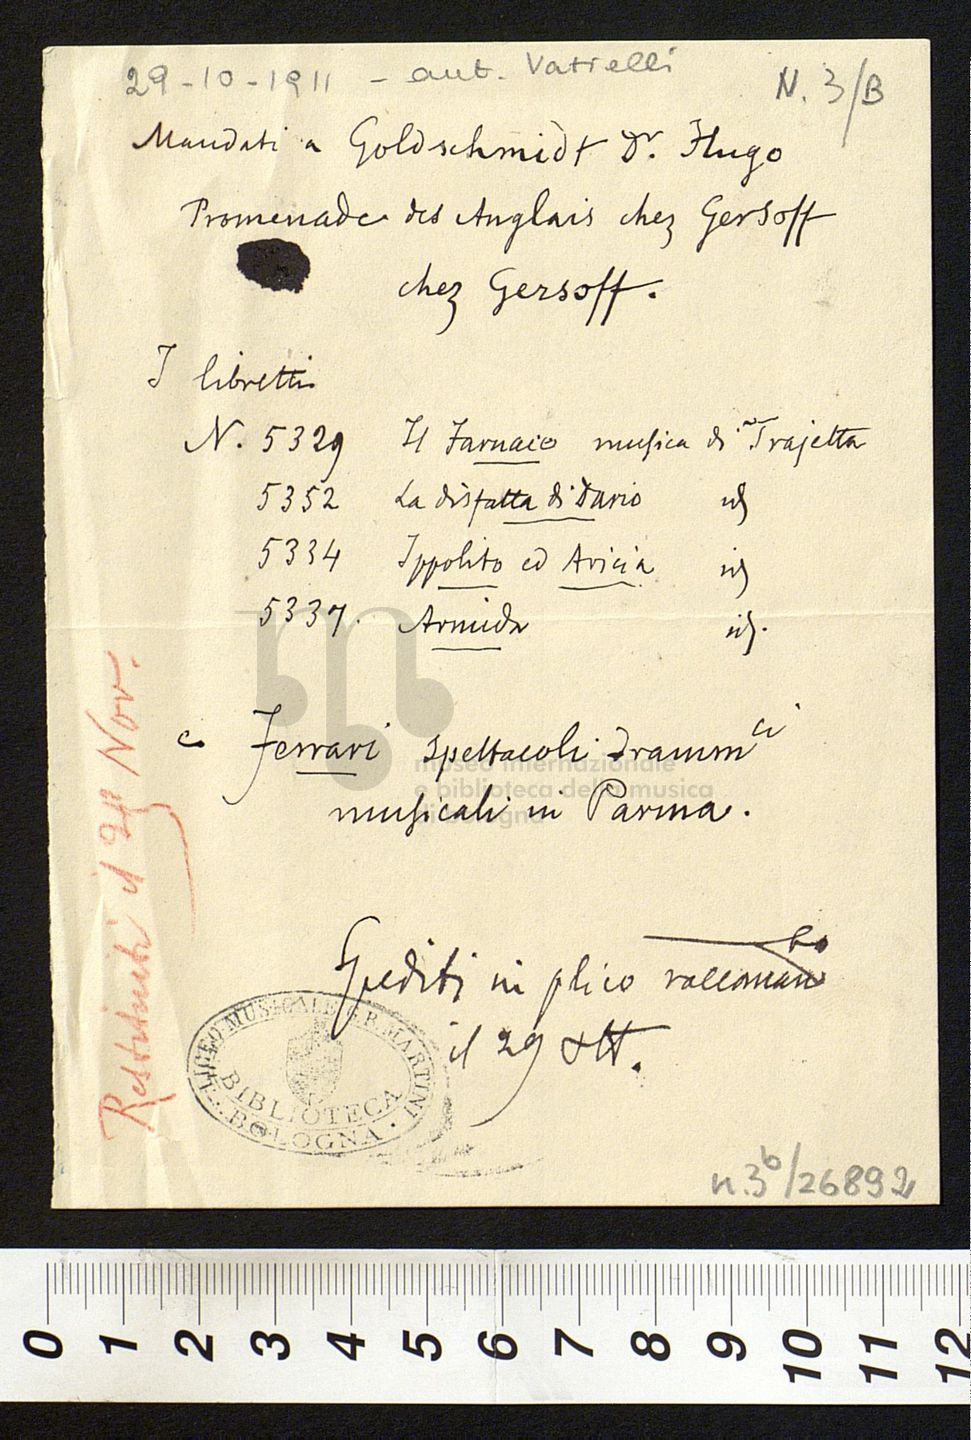 29-10-1911 - aut. Vatielli
N. 3/B
Mandati a Goldschmidt Dr. Hugo
Promenade des Anglais chez Gersoff
chez Gersoff.
I libretti
N. 5329 Il Farnace musica di Trajetta
5352 La disfatta di Dario id
5334 Ippolito ed Aricia id
5337. Armida id.
e Ferrari Spettacoli Dramm^ci
musicali in Parma.
museo internazionale
e biblioteca della musica
di bologna
Spediti in plico raccoman^to
il 29 Ott.
Restituiti il 29 Nov.
LICEO MUSICALE G.B. MARTINI
BIBLIOTECA
BOLOGNA
n. 3^b/26892
0 1 2 3 4 5 6 7 8 9 10 11 12